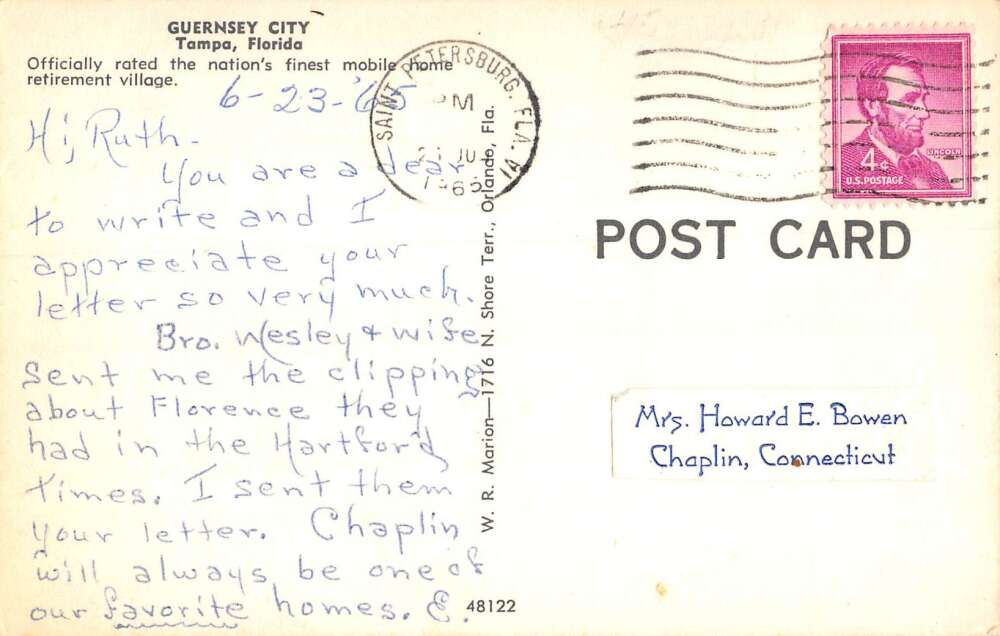 GUERNSEY CITY
Tampa, Florida
Officially rated the nation's finest mobile home
retirement village.
6-23-'65
Hi, Ruth-
You are a dear
to write and I
appreciate your
letter so very much.
Bro. Wesley & wife
sent me the clipping
about Florence they
had in the Hartford
Times. I sent them
your letter. Chaplin
will always be one of
our favorite homes. E.
48122
W. R. Marion—1716 N. Shore Terr., Orlando, Fla.
SAINT PETERSBURG, FLA.
PM
1965
LINCOLN
4¢
U.S. POSTAGE
POST CARD
Mrs. Howard E. Bowen
Chaplin, Connecticut